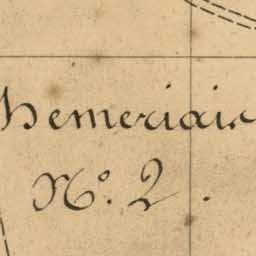 hemeriain
No. 2.